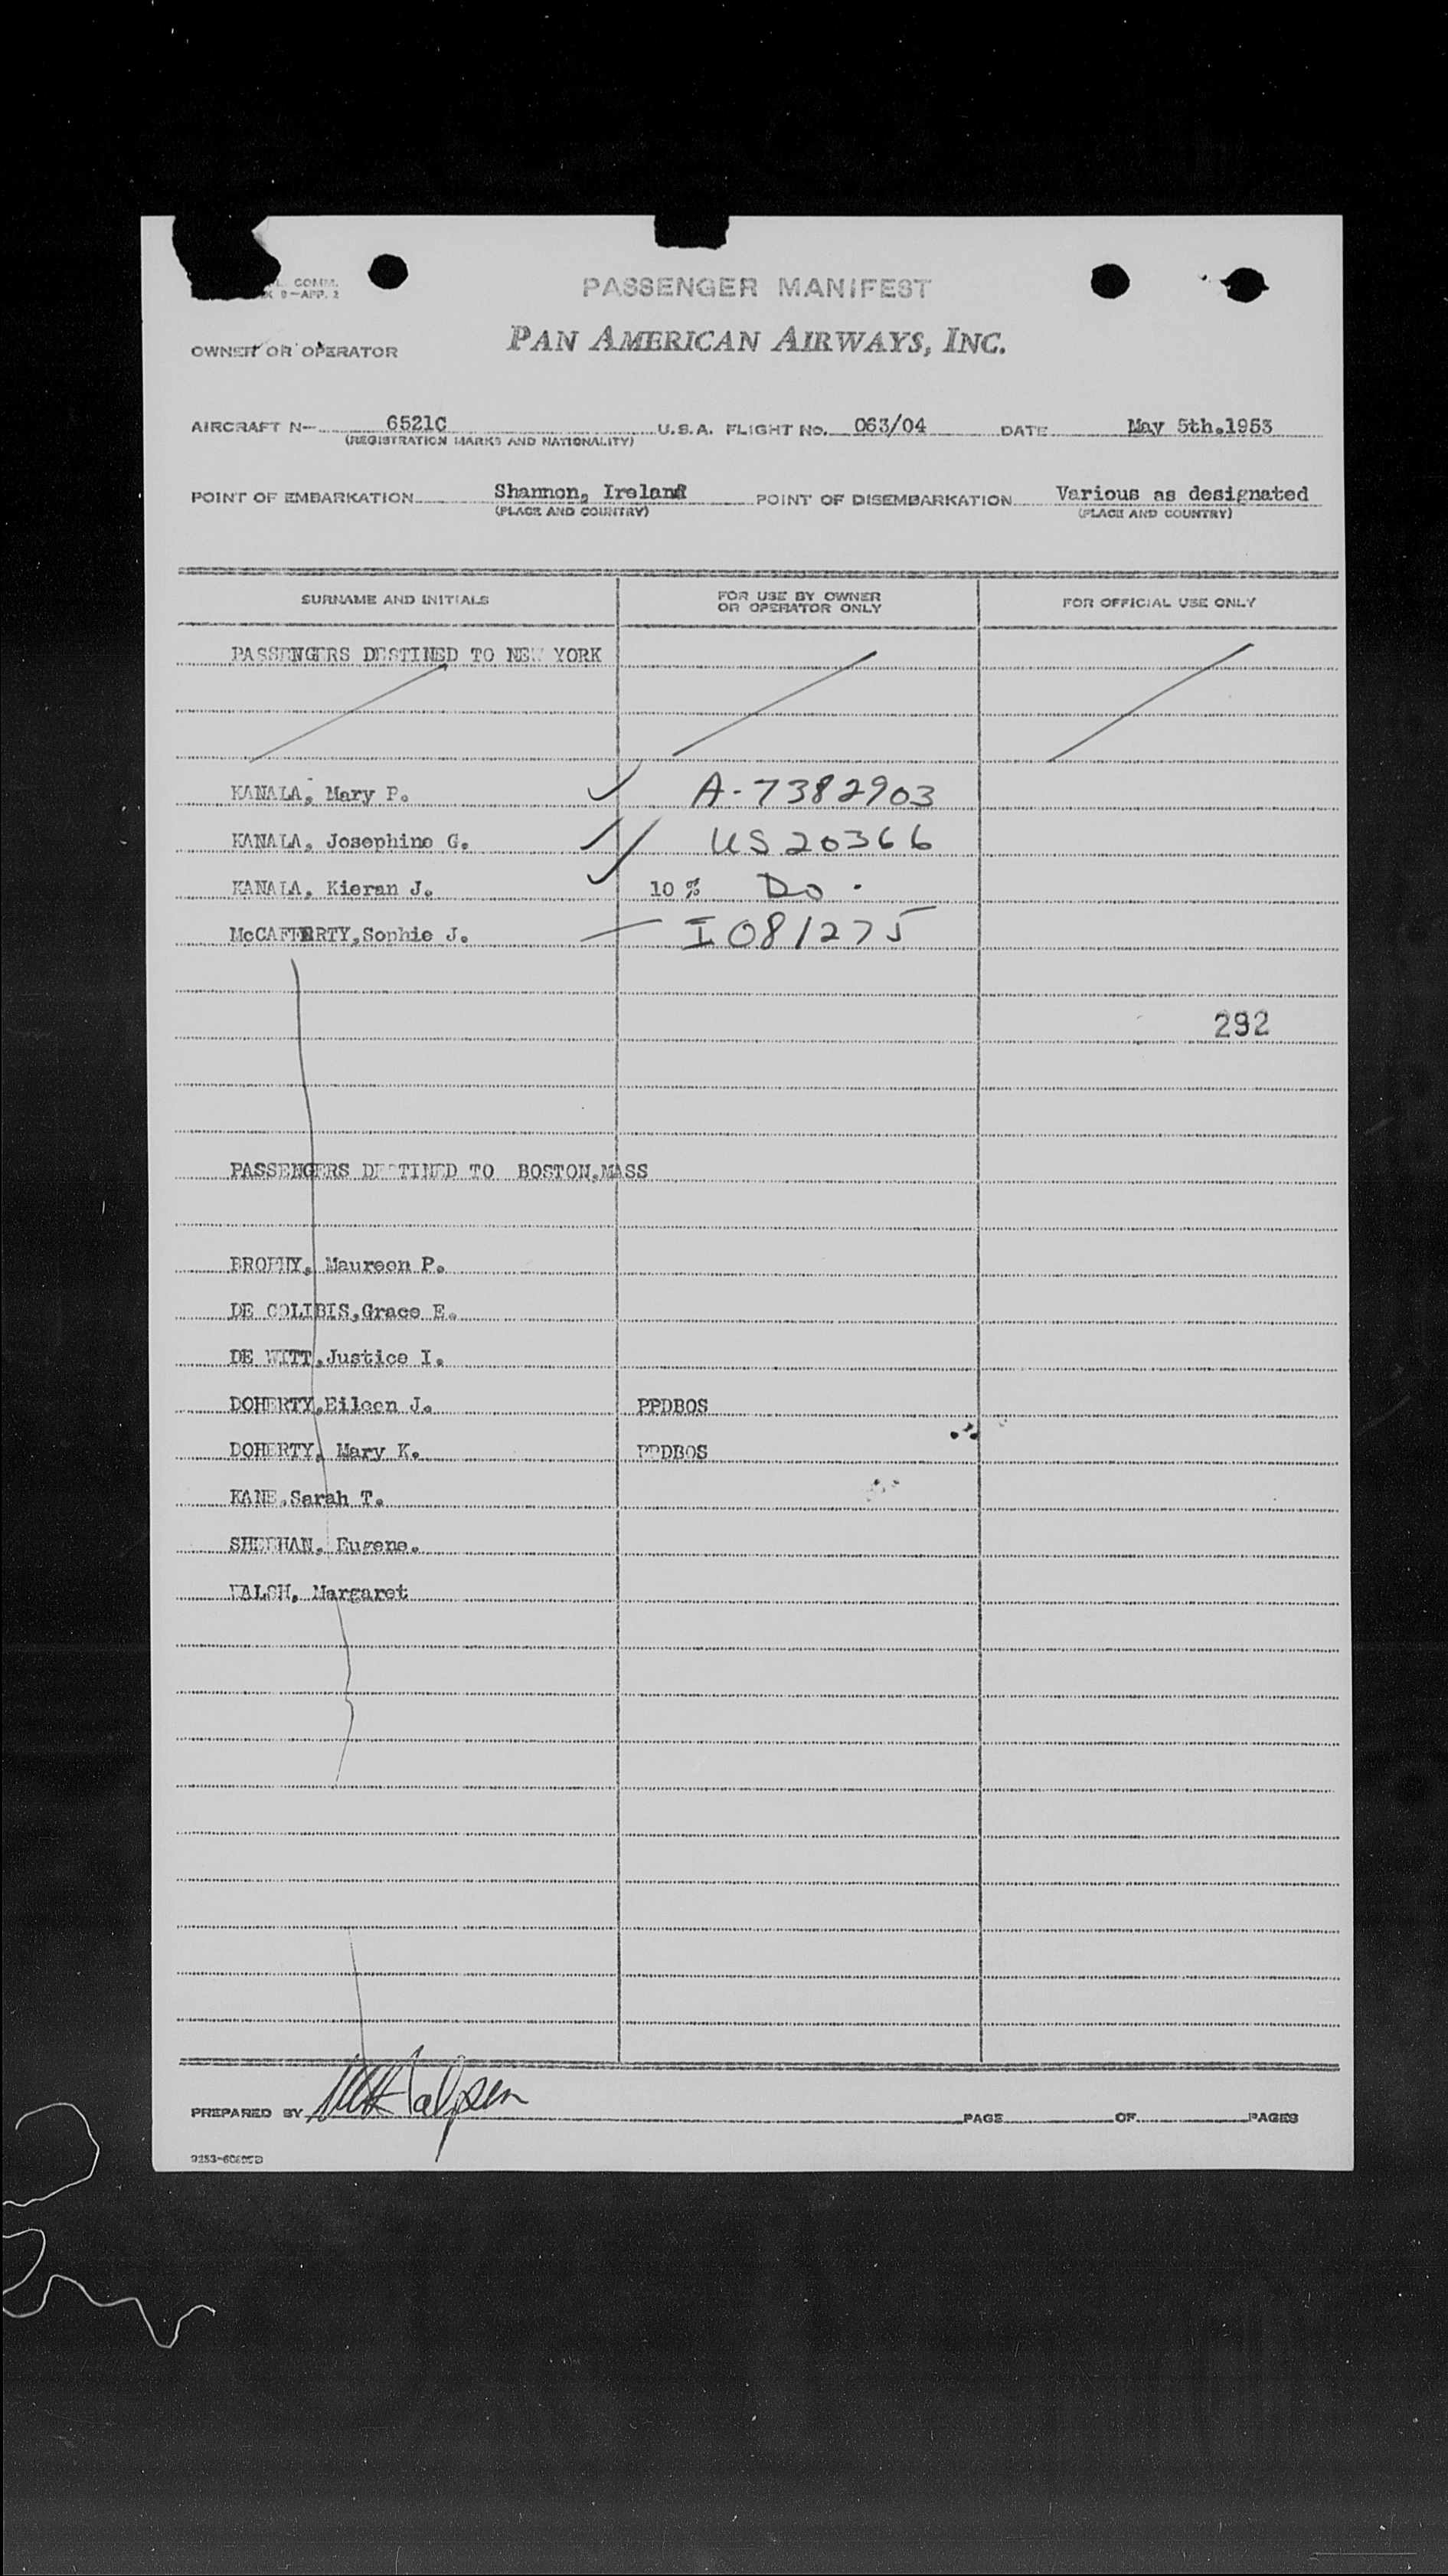 COMM.
9-APP. 2
PASSENGER MANIFEST
OWNER OR OPERATOR
PAN AMERICAN AIRWAYS, INC.
AIRCRAFT N- 6521C U.S.A. FLIGHT No. 063/04 DATE May 5th.1953
(REGISTRATION MARKS AND NATIONALITY)
POINT OF EMBARKATION Shannon, Ireland POINT OF DISEMBARKATION Various as designated
(PLACE AND COUNTRY) (PLACE AND COUNTRY)
SURNAME AND INITIALS FOR USE BY OWNER OR OPERATOR ONLY FOR OFFICIAL USE ONLY
PASSENGERS DESTINED TO NEW YORK
KANALA, Mary P. A-7382903
KANALA, Josephine G. US 20366
KANALA, Kieran J. 10 % Do.
McCAFFERTY,Sophie J. I 081275
292
PASSENGERS DESTINED TO BOSTON,MASS
BROPHY, Maureen P.
DE COLIBIS,Grace E.
DE WITT,Justice I.
DOHERTY,Eileen J. PPDBOS
DOHERTY, Mary K. PPDBOS
KANE,Sarah T.
SHEEHAN, Eugene.
WALSH, Margaret
PREPARED BY PAGE OF PAGES